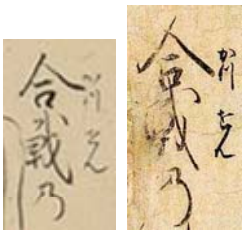 合戦乃
かつせん
合戦乃
かつせん